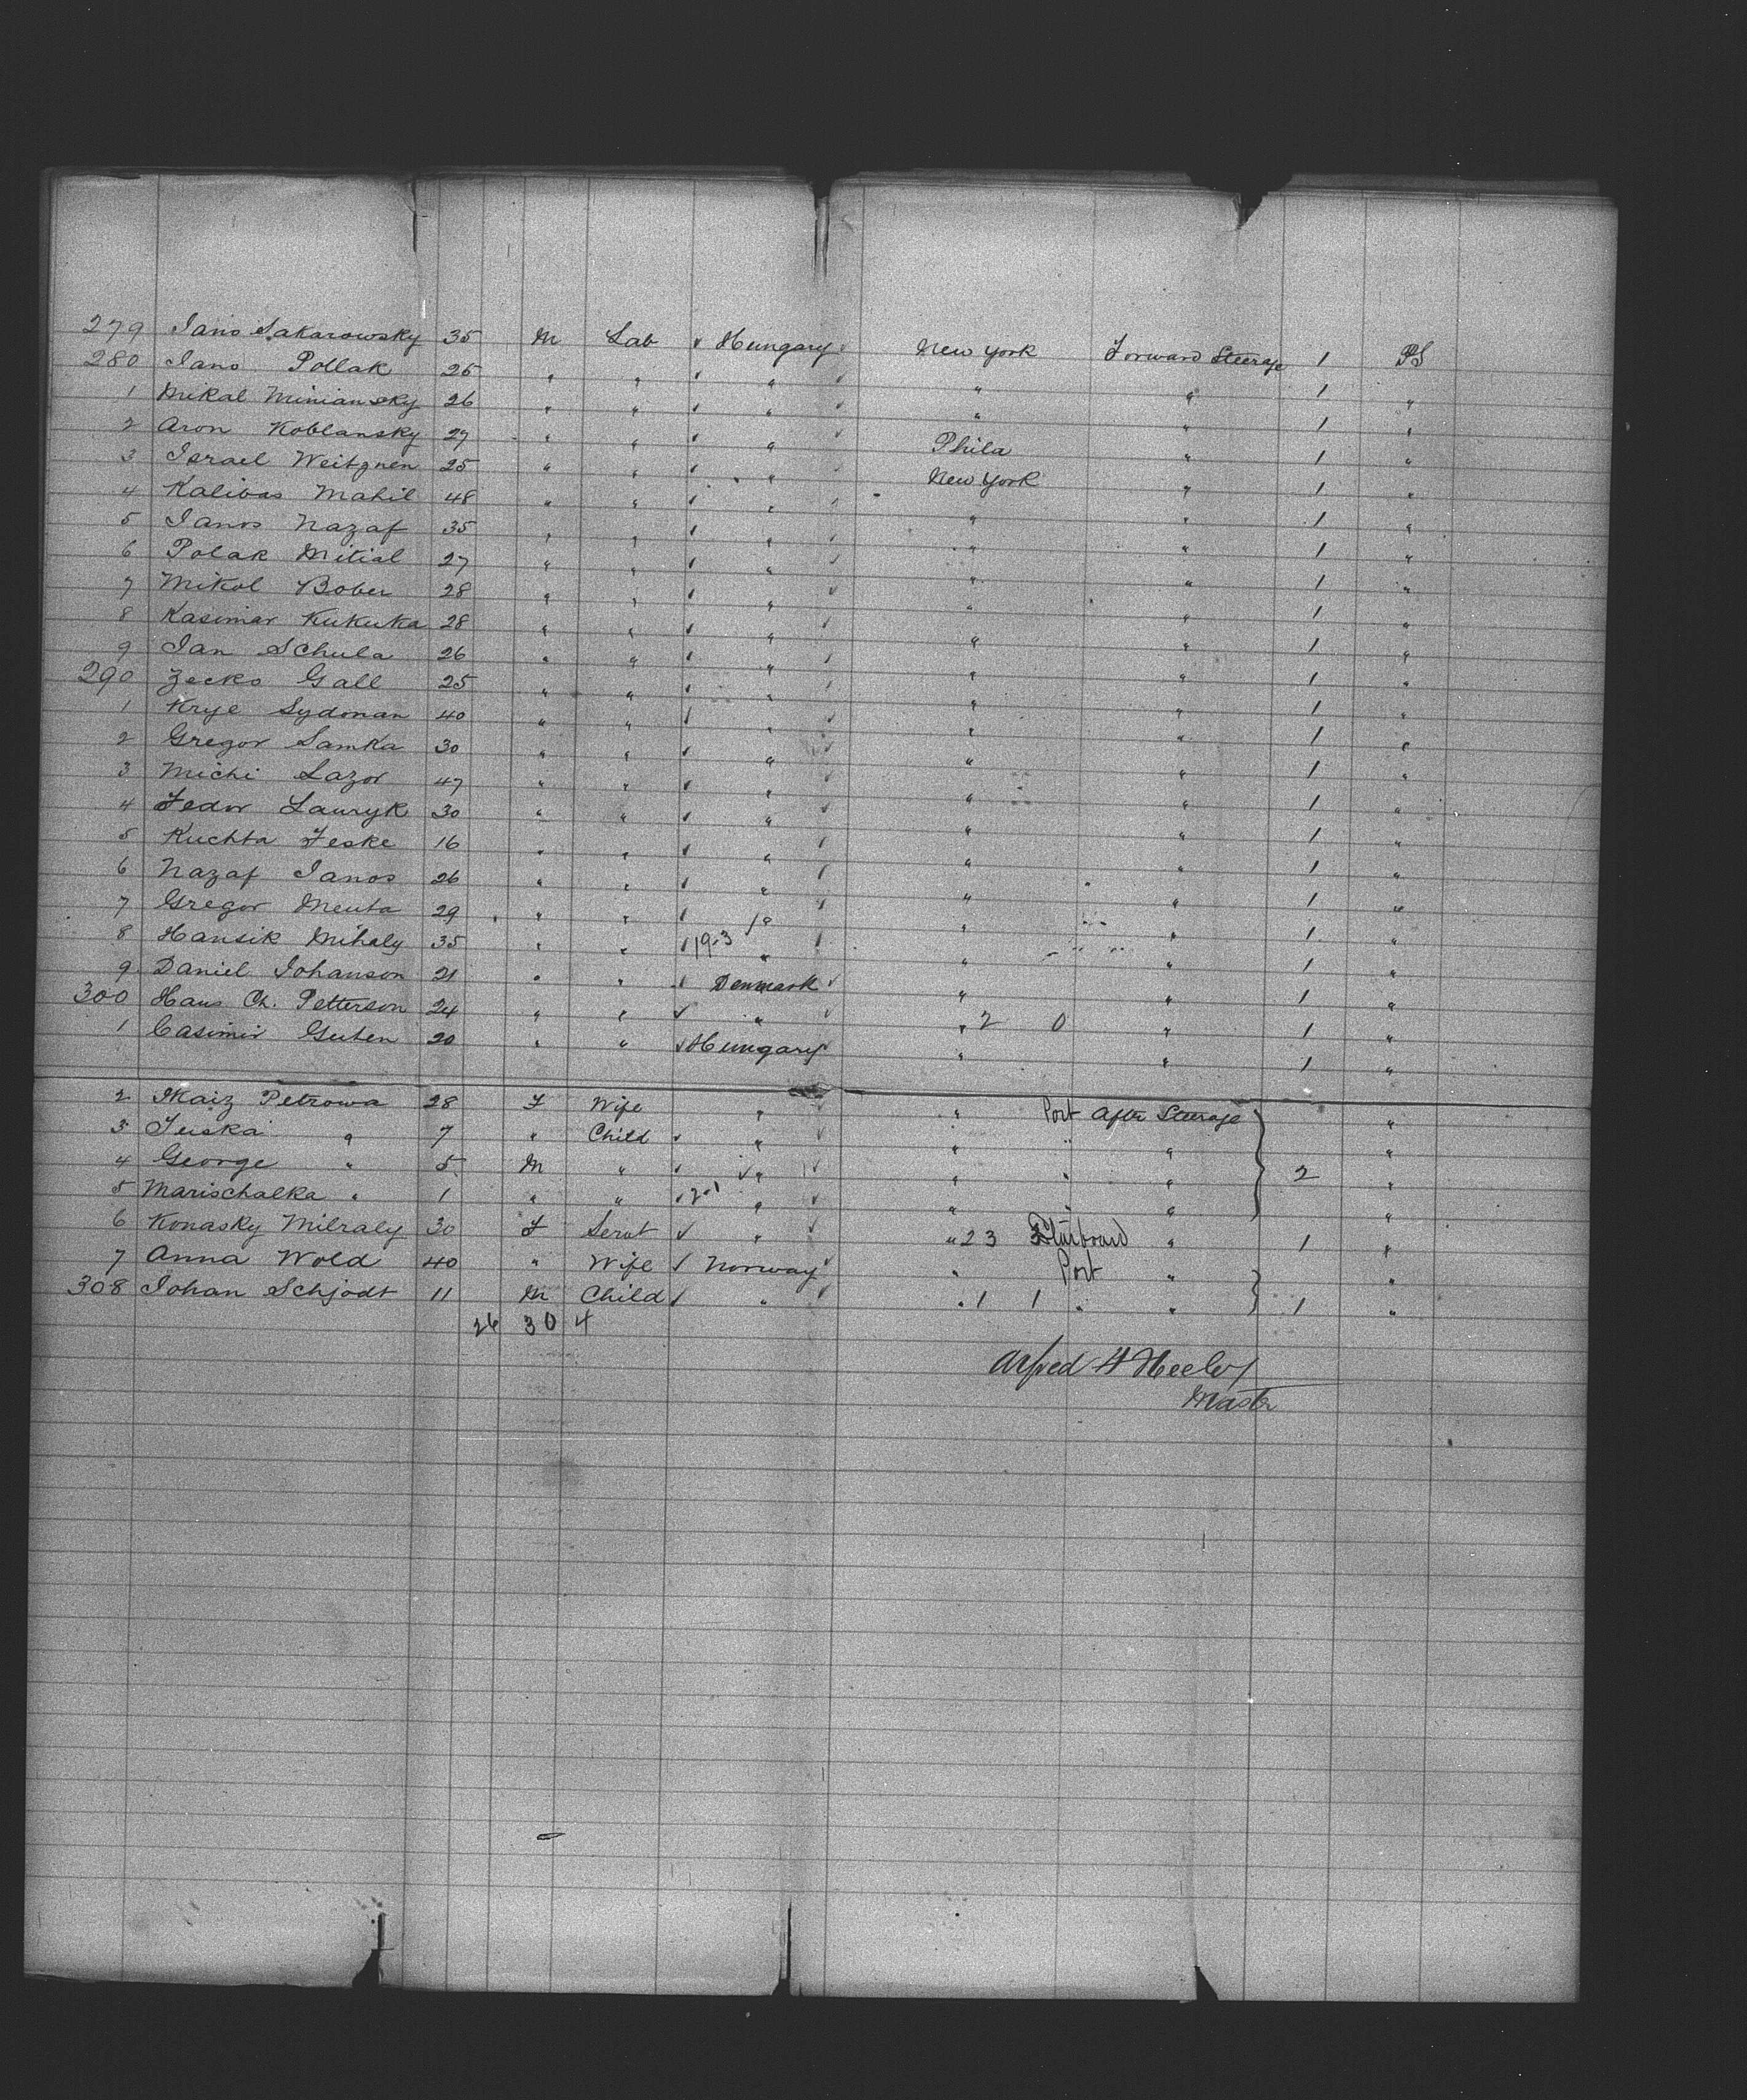 279 Jano Sakarowsky 35 M Lab ✓ Hungary ✓ New York Forward Steerage 1 PS
280 Jano Pollak 25 " " ✓ " ✓ " " 1 "
1 Mikal Miniansky 26 " " ✓ " ✓ " " 1 "
2 Aron Koblansky 27 " " ✓ " ✓ Phila " 1 "
3 Israel Weitznen 25 " " ✓ " ✓ New York " 1 "
4 Kalibas Mahil 48 " " ✓ " ✓ " " 1 "
5 Janos Nazaf 35 " " ✓ " ✓ " " 1 "
6 Polak Mitial 27 " " ✓ " ✓ " " 1 "
7 Mikol Bober 28 " " ✓ " ✓ " " 1 "
8 Kasimar Kukuka 28 " " ✓ " ✓ " " 1 "
9 Jan Schula 26 " " ✓ " ✓ " " 1 "
290 Zecko Gall 25 " " ✓ " ✓ " " 1 "
1 Krye Sydonan 40 " " ✓ " ✓ " " 1 "
2 Gregor Samka 30 " " ✓ " ✓ " " 1 "
3 Michi Lazor 47 " " ✓ " ✓ " " 1 "
4 Fedor Lauryk 30 " " ✓ " ✓ " " 1 "
5 Kuchta Feske 16 " " ✓ " ✓ " " 1 "
6 Nazaf Janos 26 " " ✓ " ✓ " " 1 "
7 Gregor Menta 29 " " ✓ " ✓ " " 1 "
8 Hansik Mihaly 35 " " ✓ 19-3 " ✓ " " 1 "
9 Daniel Johanson 21 " " ✓ Denmark ✓ " " 1 "
300 Hans Ch. Petterson 24 " " ✓ " ✓ " 2 0 " 1 "
1 Casimir Guten 20 " " ✓ Hungary ✓ " " 1 "
2 Maiz Petrowa 28 F Wife " ✓ " Port After Steerage "
3 Juska " 7 " Child ✓ " ✓ " " " "
4 George " 5 M " ✓ ✓ " ✓ " " " 2 "
5 Marischalka " 1 " " ✓ 2-1 " ✓ " " " "
6 Konasky Milraly 30 F Servt ✓ " ✓ " 23 Starboard " 1 "
7 Anna Wold 40 " Wife ✓ Norway ✓ " Port " "
308 Johan Schjodt 11 M Child ✓ " ✓ " 1 1 " " 1 "
26 30 4
Alfred H Neeley
Master